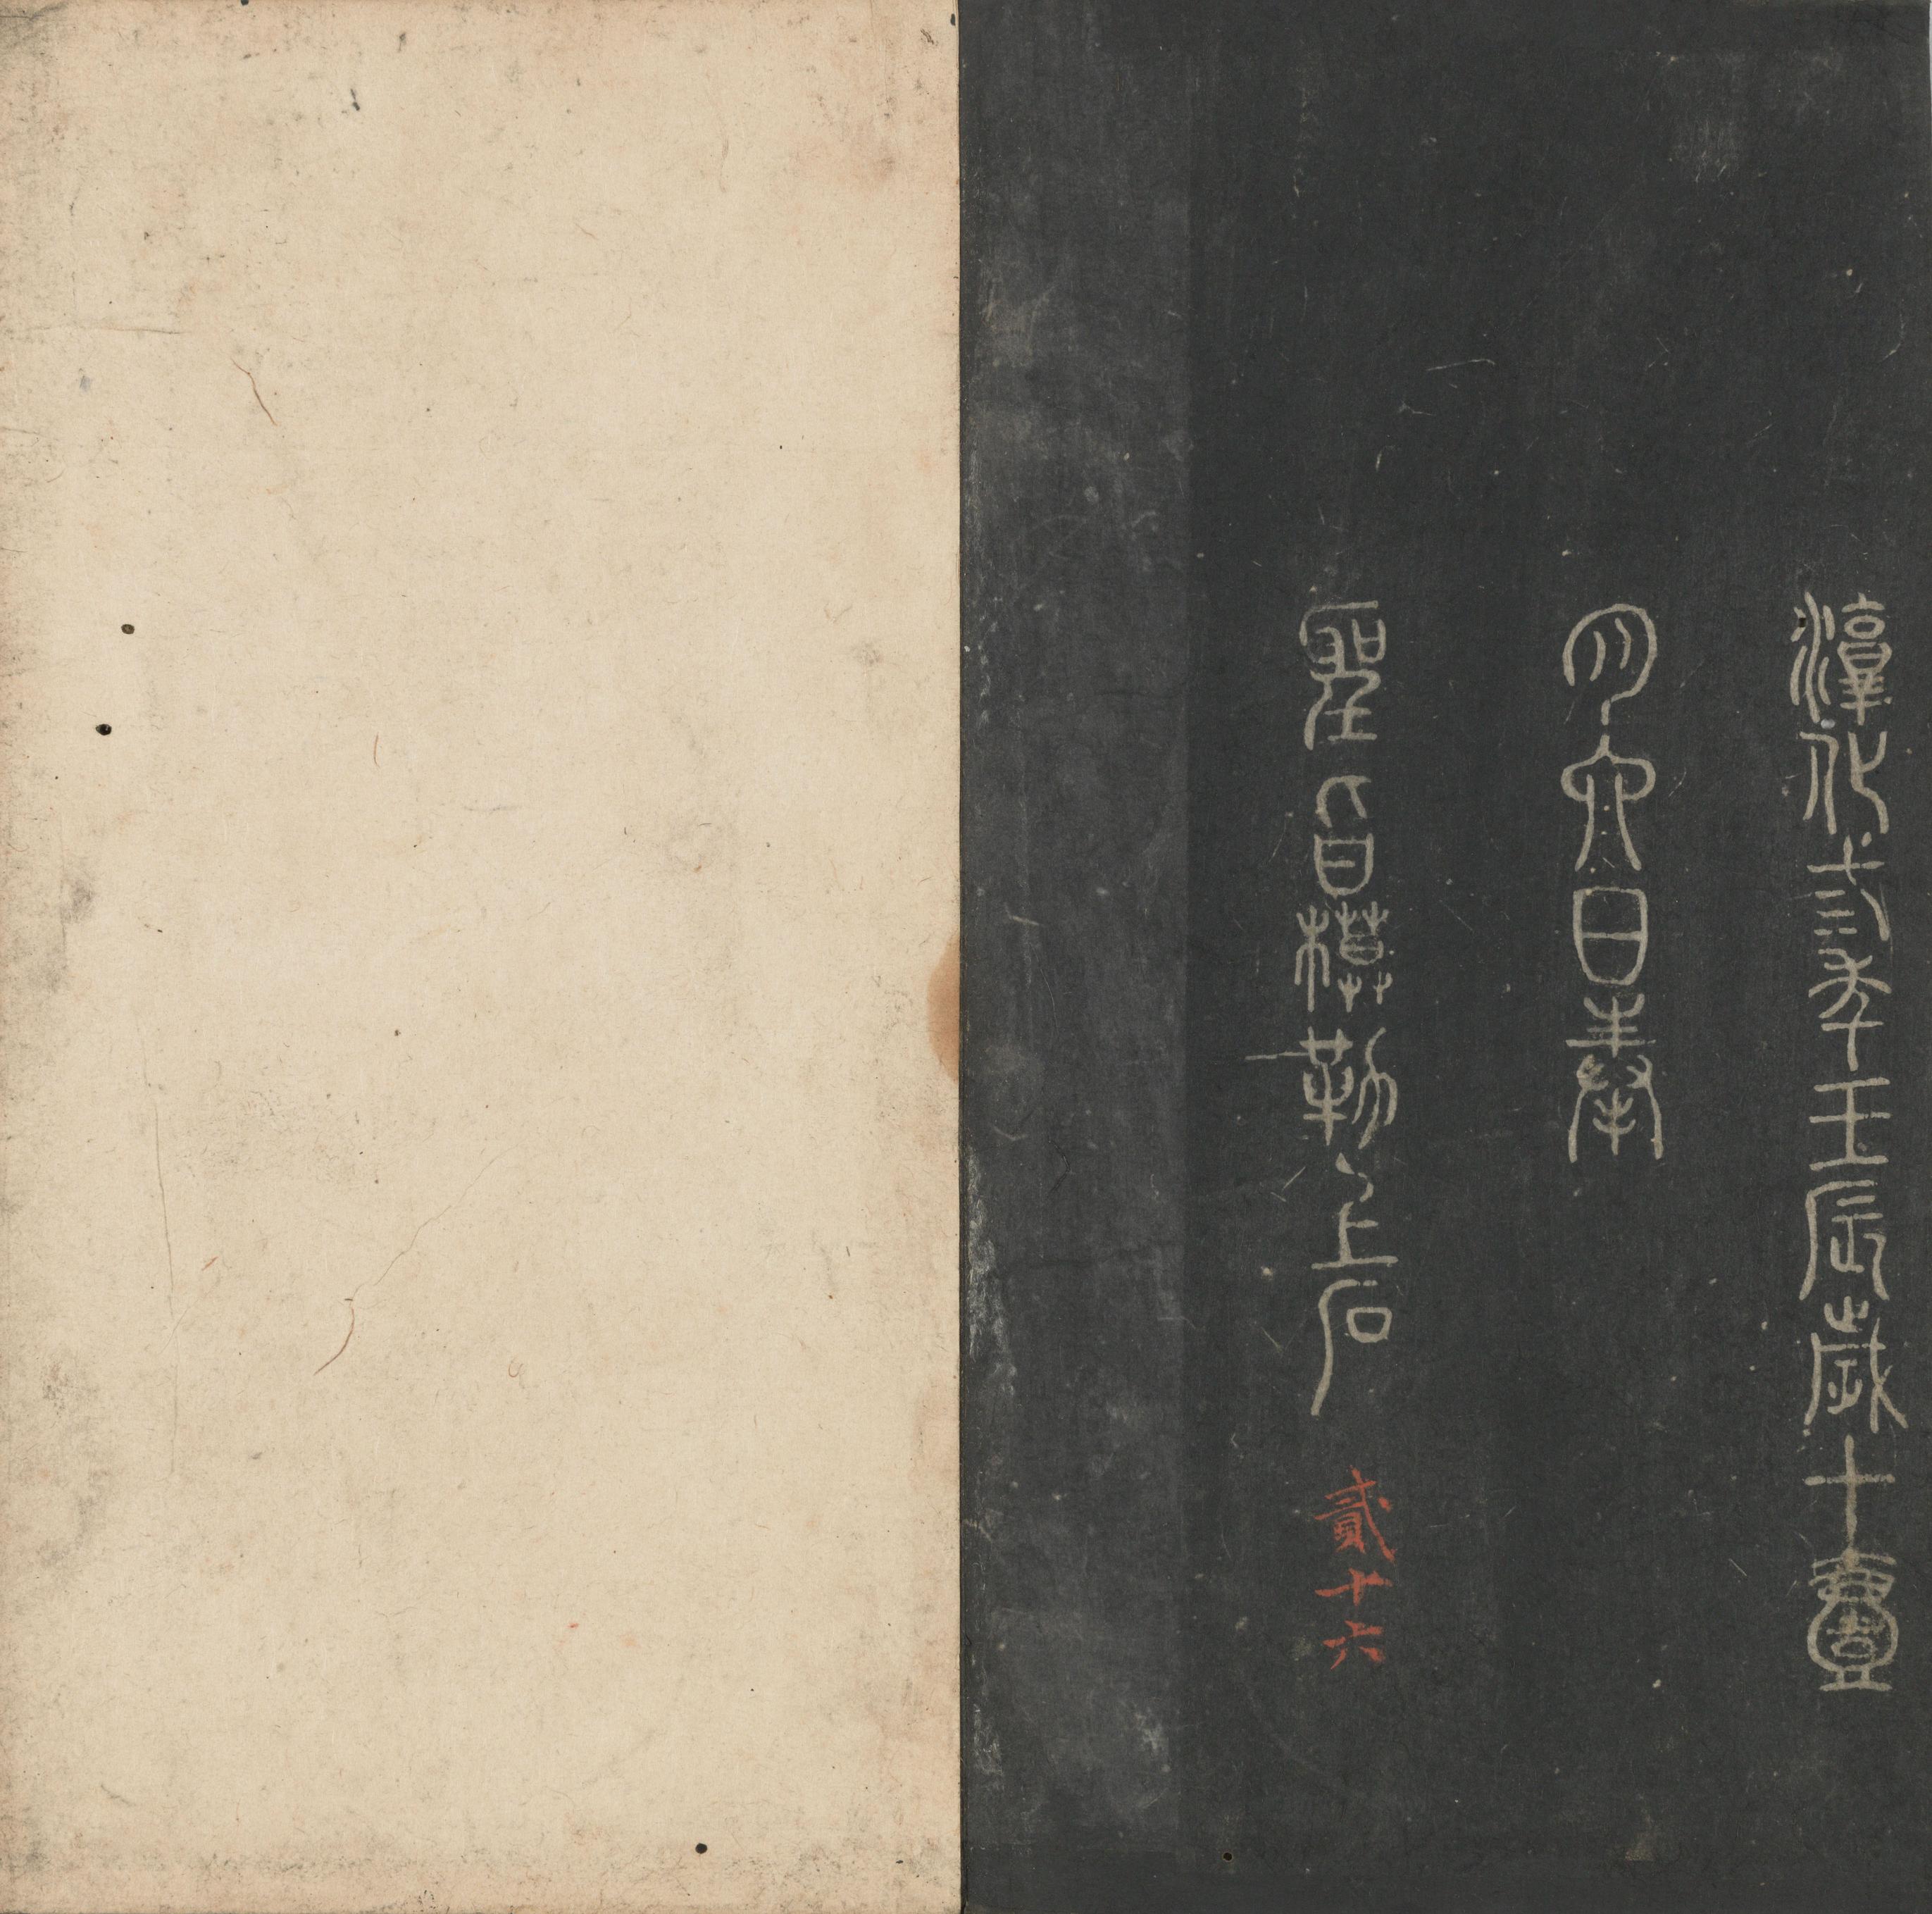 淳化三年壬辰歲十壹
月六日奉
聖旨模勒上石
貳十六